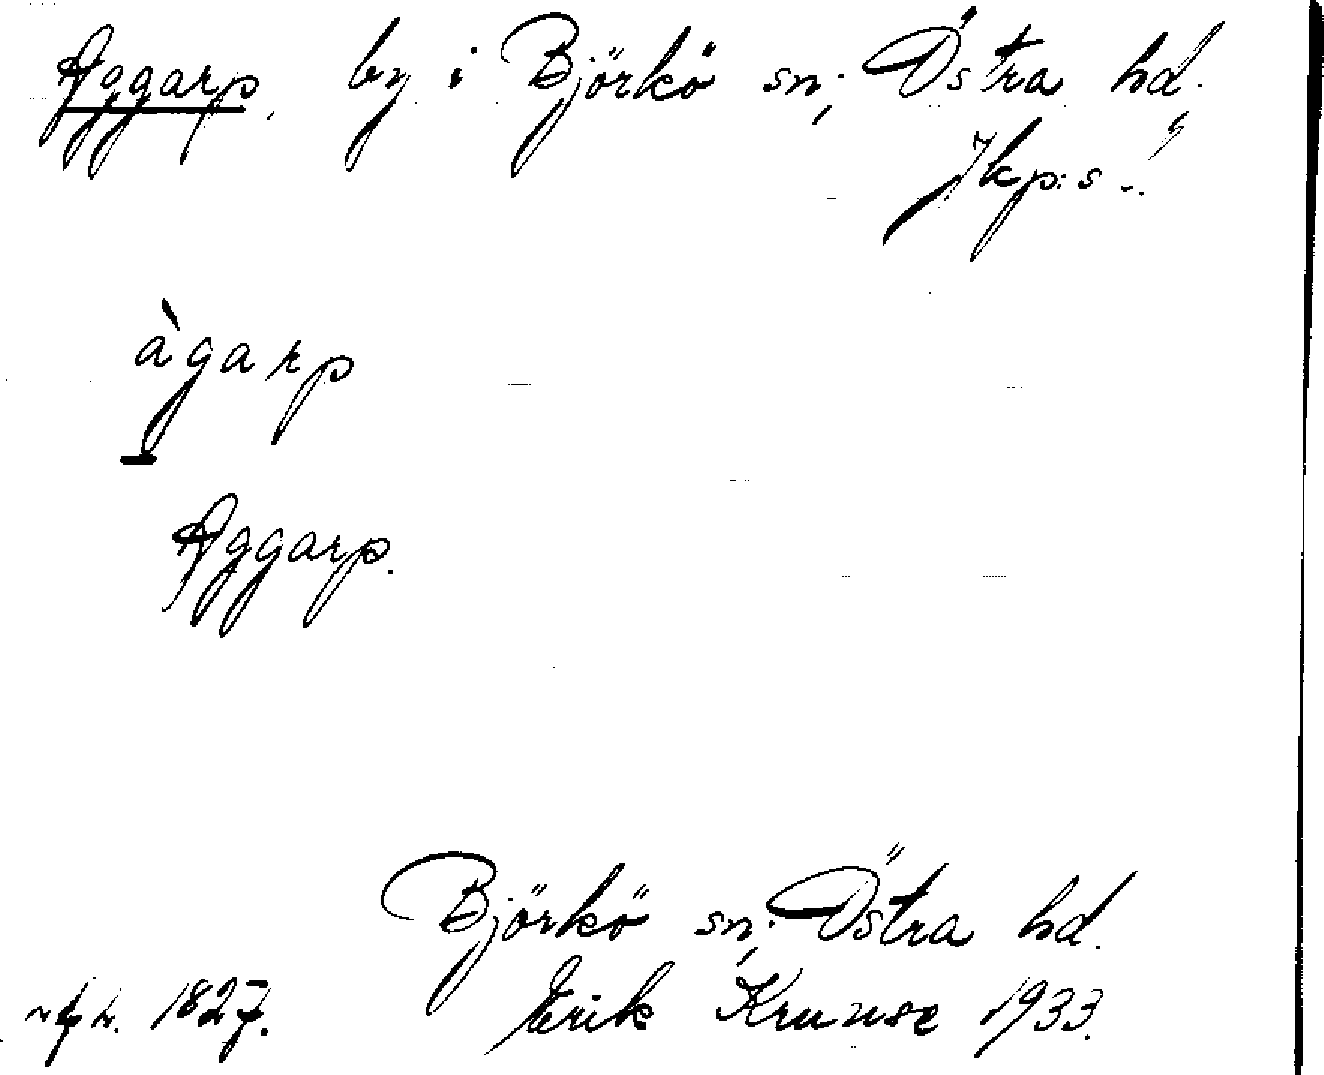 Aggarp, by i Björkö sn; Östra hd.
Jkp:s
àgarp
Aggarp.
Björkö sn; Östra hd.
1827. Erik Kruuse 1933.